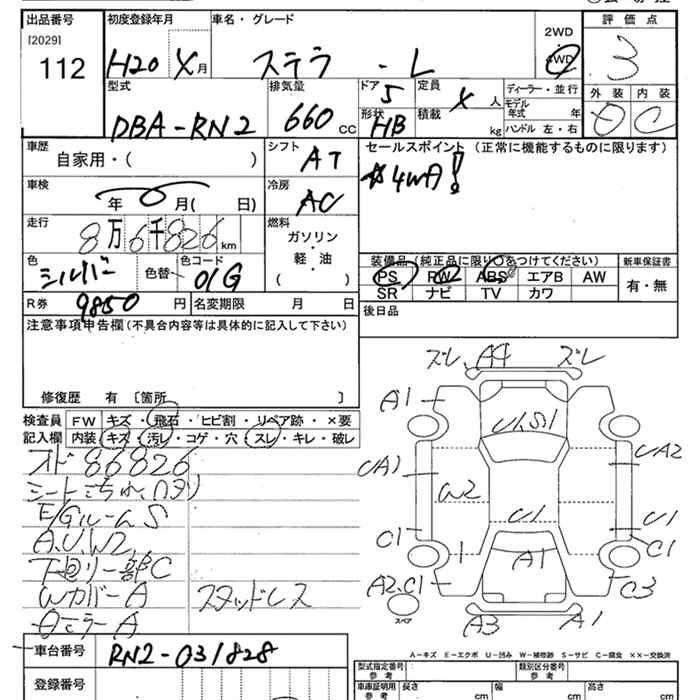 出品番号 初度登録年月 車名・グレード 評価点
[2029] 112 H20 X月 ステラ - L 2WD 4WD 3
型式 排気量 ドア 5 定員 X 人 ディーラー・並行 外装 内装
DBA-RN2 660 CC 形状 HB 積載 kg モデル年式 年 ハンドル 左・右 D C
車歴 自家用・( ) シフト AT セールスポイント (正常に機能するものに限ります)
車検 年 月( 日) 冷房 AC 4WD!
走行 8万6千826km 燃料 ガソリン・軽・油 ( )
装備品(純正品に限り○をつけてください) 新車保証書
色 シルバー 色替 色コード 01G PS PW ABS エアB AW 有・無
SR ナビ TV カワ
R券 9850円 名変期限 月 日 後日品
注意事項申告欄(不具合内容等は具体的に記入して下さい)
修復歴 有 〔箇所 〕
検査員 FW キズ・飛石・ヒビ割・リペア跡・×要
記入欄 内装 キズ・汚レ・コゲ・穴・スレ・キレ・破レ
オド 86826
シート
E/Gルーム S
A.U.W2
下回リ一部C
Wカバー A スタッドレス
ミラー A
車台番号 RN2-031828
登録番号
ズレ A4 ズレ
A1 U1,S1
A1 W2 A2
C1 U1 U1 C1
1 A1
A2,C1 C3
スペア A3 A1
A-キズ E-エクボ U-凹み W-補修跡 S-サビ C-腐食 ××-交換済
型式指定番号 参考 類別区分番号 参考
車庫証明用 参考 長さ cm 幅 cm 高さ cm